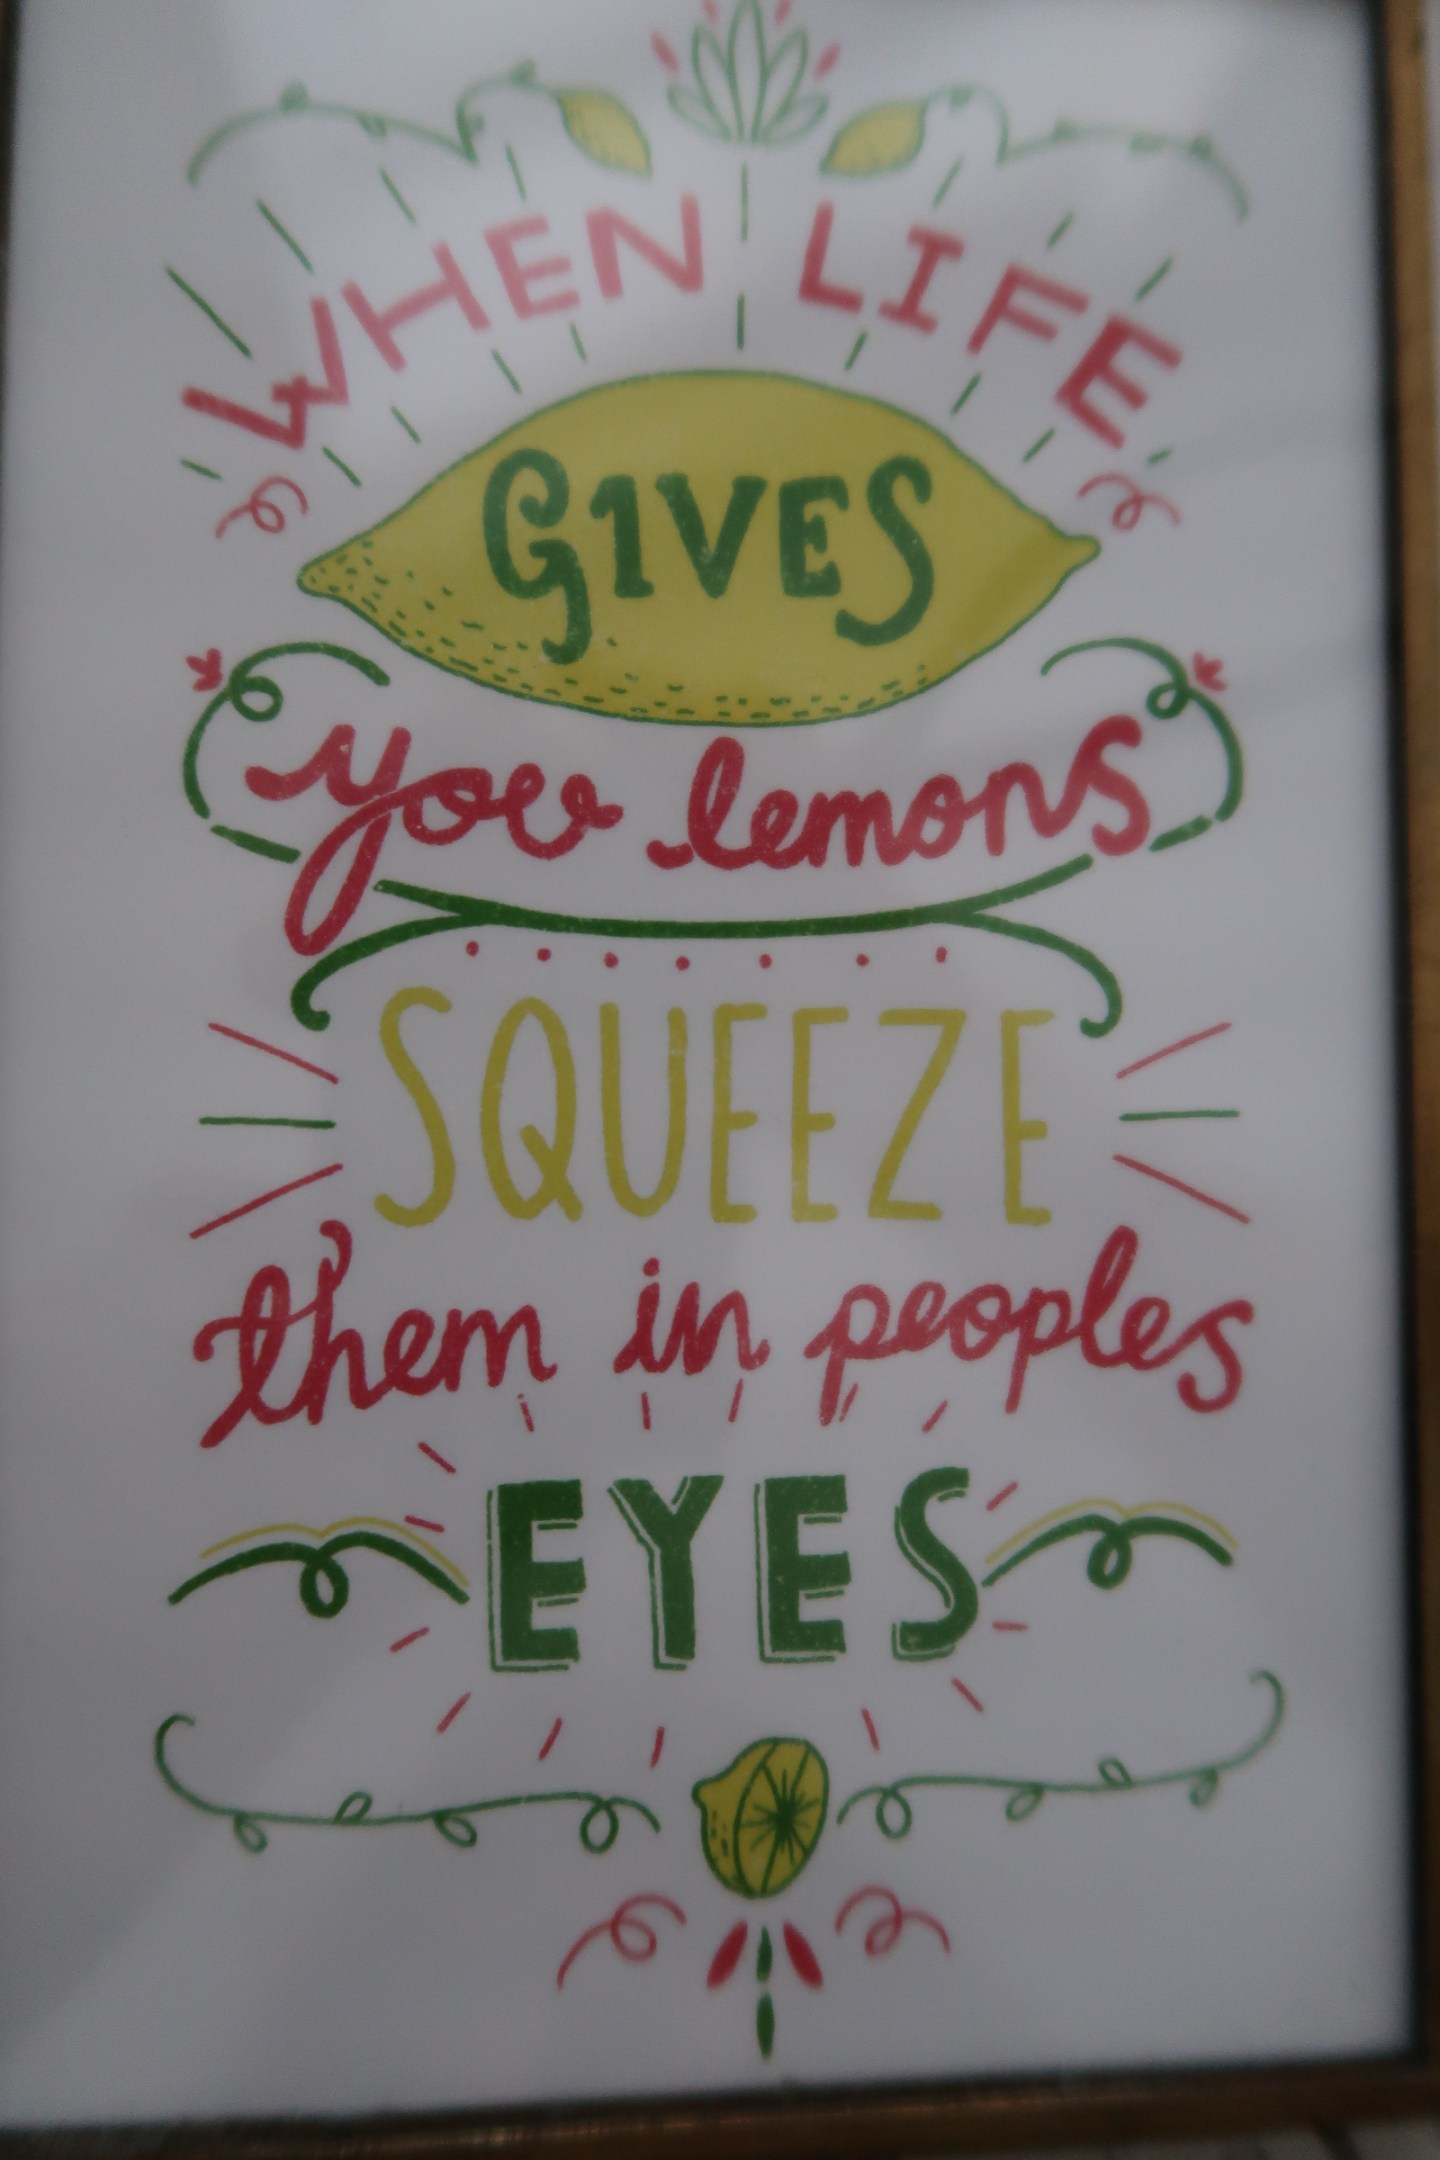 WHEN LIFE
GIVES
you lemons
SQUEEZE
them in peoples
EYES